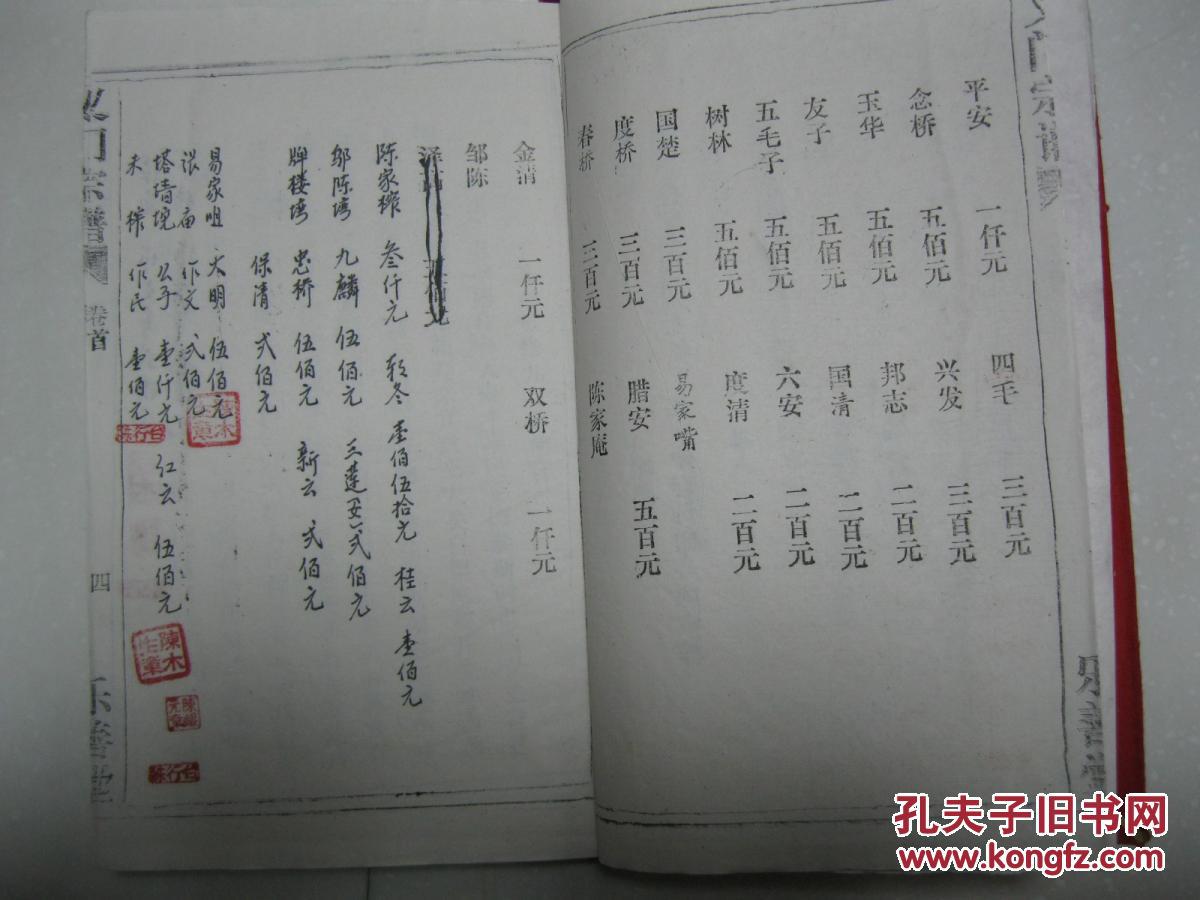 平安 一仟元 四毛 三百元
念桥 五佰元 兴发 三百元
玉华 五佰元 邦志 二百元
友子 五佰元 国清 二百元
五毛子 五佰元 六安 二百元
树林 五佰元 度清 二百元
国楚 三百元 易家嘴
度桥 三百元 腊安 五百元
春桥 三百元 陈家庵
金清 一仟元 双桥 一仟元
邹陈
陈家榨 叁仟元 冬 壹佰伍拾元 桂云 壹佰元
邹陈塆 九麟 伍佰元 三莲 弍佰元
牌楼塆 忠桥 伍佰元 新云 弍佰元
保清 弍佰元
易家咀 大明 伍佰元
庙 作文 弍佰元
塔墙垸 公子 壹仟元 红云 伍佰元
榨 作民 壹佰元
宗谱
卷首
四
乐善堂
乐善堂
陳木
孔夫子旧书网
www.kongfz.com